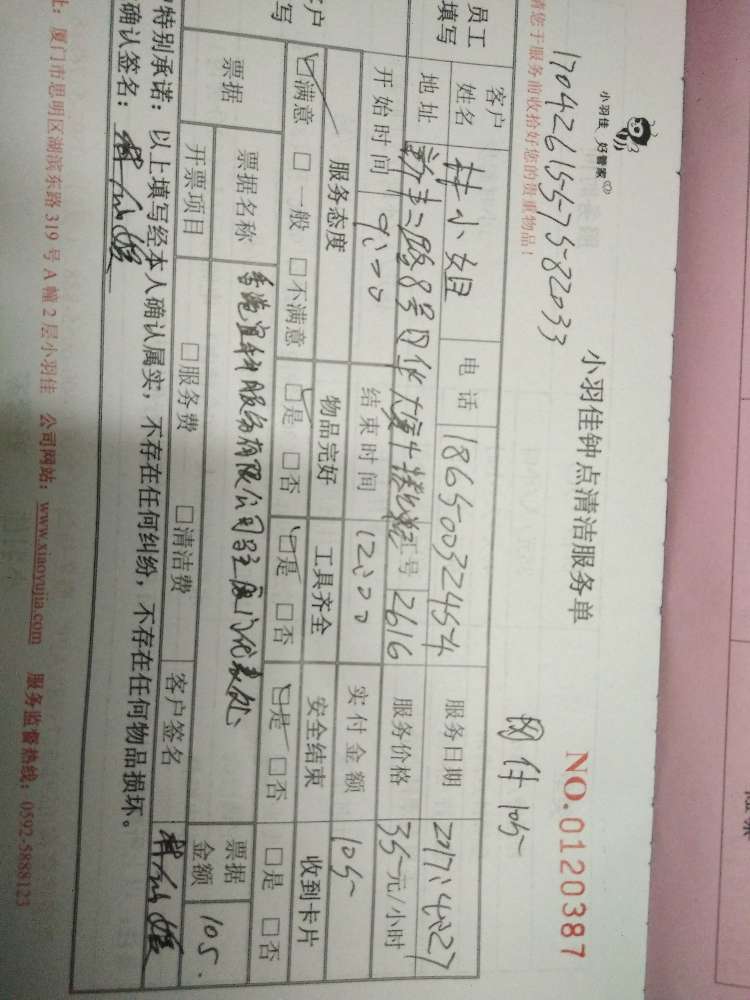 小羽佳 好管家
小羽佳钟点清洁服务单
NO.0120387
1704261557582033
请您于服务前收拾好您的贵重物品！
网付105
员工填写
客户姓名 林小姐 电话 18650032454 服务日期 2017.4.27
地址 工号 2616 服务价格 35元/小时
开始时间 9:00 结束时间 12:00 实付金额 105
客户 写
服务态度 物品完好 工具齐全 安全结束 收到卡片
☑满意 □一般 □不满意 ☑是 □否 ☑是 □否 ☑是 □否 □是 □否
票据 票据名称 香港宜科服务有限公司驻厦门代表处 票据金额 105.
开票项目 □服务费 □清洁费 客户签名
特别承诺：以上填写经本人确认属实，不存在任何纠纷，不存在任何物品损坏。
确认签名：
址：厦门市思明区湖滨东路 319 号 A 幢 2 层小羽佳 公司网站：www.xiaoyujia.com 服务监督热线：0592-5888123